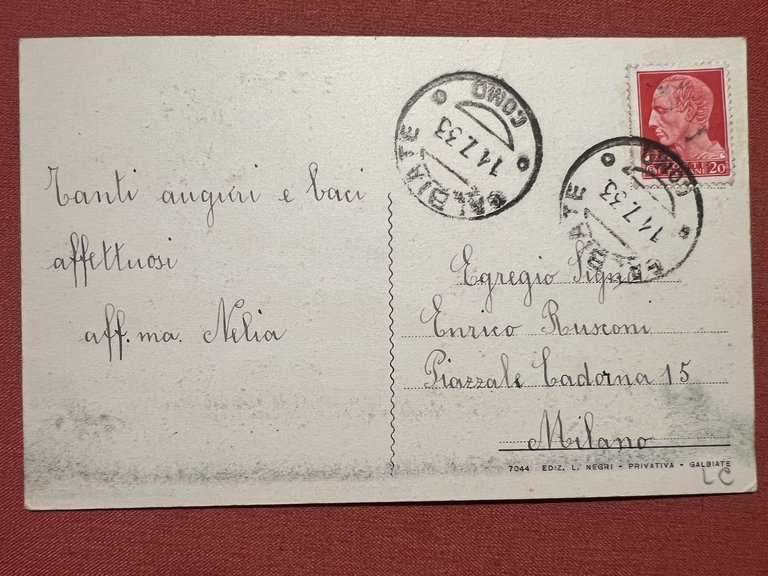 Tanti auguri e baci
affettuosi
aff.ma. Nelia
GALBIATE
14.7.33
COMO
GALBIATE
14.7.33
COMO
20
Egregio Signor
Enrico Rusconi
Piazzale Cadorna 15
Milano
7044 EDIZ. L. NEGRI - PRIVATIVA - GALBIATE
LC